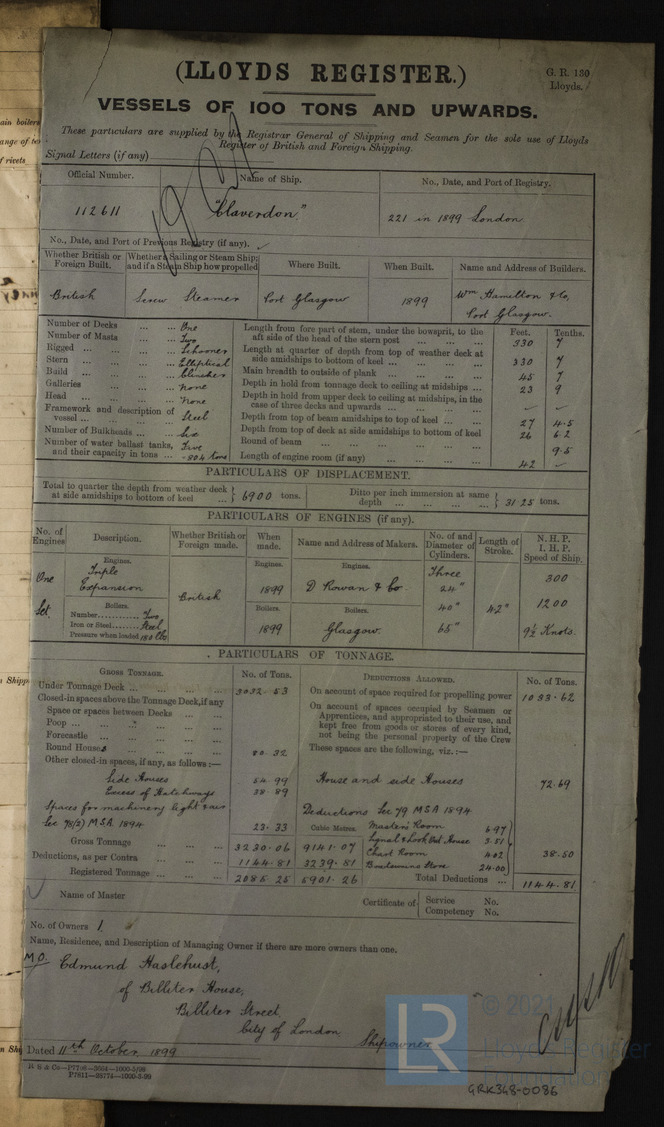 (LLOYDS REGISTER.)
G. R. 130
Lloyds.
VESSELS OF 100 TONS AND UPWARDS.
These particulars are supplied by the Registrar General of Shipping and Seamen for the sole use of Lloyds
Register of British and Foreign Shipping.
Signal Letters (if any)
Official Number. Name of Ship. No., Date, and Port of Registry.
112611 "Claverdon" 221 in 1899 London
No., Date, and Port of Previous Registry (if any).
Whether British or Foreign Built. Whether a Sailing or Steam Ship; and if a Steam Ship how propelled Where Built. When Built. Name and Address of Builders.
British Screw Steamer Port Glasgow 1899 Wm. Hamilton & Co,
Port Glasgow.
Number of Decks ... ... One
Number of Masts ... ... Two
Rigged ... ... Schooner
Stern ... ... Elliptical
Build ... ... Clincher
Galleries ... ... None
Head ... ... None
Framework and description of vessel ... Steel
Number of Bulkheads ... Six
Number of water ballast tanks, and their capacity in tons ... Five - 804 tons
Feet. Tenths.
Length from fore part of stem, under the bowsprit, to the aft side of the head of the stern post 330 7
Length at quarter of depth from top of weather deck at side amidships to bottom of keel 330 7
Main breadth to outside of plank 45 7
Depth in hold from tonnage deck to ceiling at midships 23 9
Depth in hold from upper deck to ceiling at midships, in the case of three decks and upwards
Depth from top of beam amidships to top of keel 27 4.5
Depth from top of deck at side amidships to bottom of keel 26 6.2
Round of beam 9.5
Length of engine room (if any) 42
PARTICULARS OF DISPLACEMENT.
Total to quarter the depth from weather deck at side amidships to bottom of keel 6900 tons. Ditto per inch immersion at same depth 31.25 tons.
PARTICULARS OF ENGINES (if any).
No. of Engines Description. Whether British or Foreign made. When made. Name and Address of Makers. No. of and Diameter of Cylinders. Length of Stroke. N. H. P. I. H. P. Speed of Ship.
Engines. Engines. Engines.
One Triple Expansion British 1899 D Rowan & Co Three 24" 300
Boilers. Boilers. Boilers. 40" 42" 1200
Set Number Two
Iron or Steel Steel
Pressure when loaded 180 lbs
1899 Glasgow 65" 9½ Knots
PARTICULARS OF TONNAGE.
GROSS TONNAGE. No. of Tons. DEDUCTIONS ALLOWED. No. of Tons.
Under Tonnage Deck ... 3032.53
On account of space required for propelling power 1033.62
Closed-in spaces above the Tonnage Deck, if any
Space or spaces between Decks
Poop
Forecastle
Round House 80.32
Other closed-in spaces, if any, as follows:—
On account of spaces occupied by Seamen or Apprentices, and appropriated to their use, and kept free from goods or stores of every kind, not being the personal property of the Crew
These spaces are the following, viz.:—
Side Houses 54.99 House and side Houses 72.69
Excess of Hatchways 38.89
Spaces for machinery light & air
Sec 78(2) M.S.A. 1894 23.33
Deductions Sec 79 M.S.A 1894
Cubic Metres.
Master's Room 6.97
Signal & Look Out House 3.51
Chart Room 4.02
Boatswains Store 24.00
38.50
Gross Tonnage 3230.06 9141.07
Deductions, as per Contra 1144.81 3239.81
Registered Tonnage 2085.25 5901.26
Total Deductions 1144.81
Name of Master Certificate of Service No.
Competency No.
No. of Owners 1
Name, Residence, and Description of Managing Owner if there are more owners than one,
M.O. Edmund Haslehust,
of Billiter House,
Billiter Street,
City of London
Shipowner
Dated 11th October 1899
LR © 2021
Lloyd's Register
Foundation
GRK348-0086